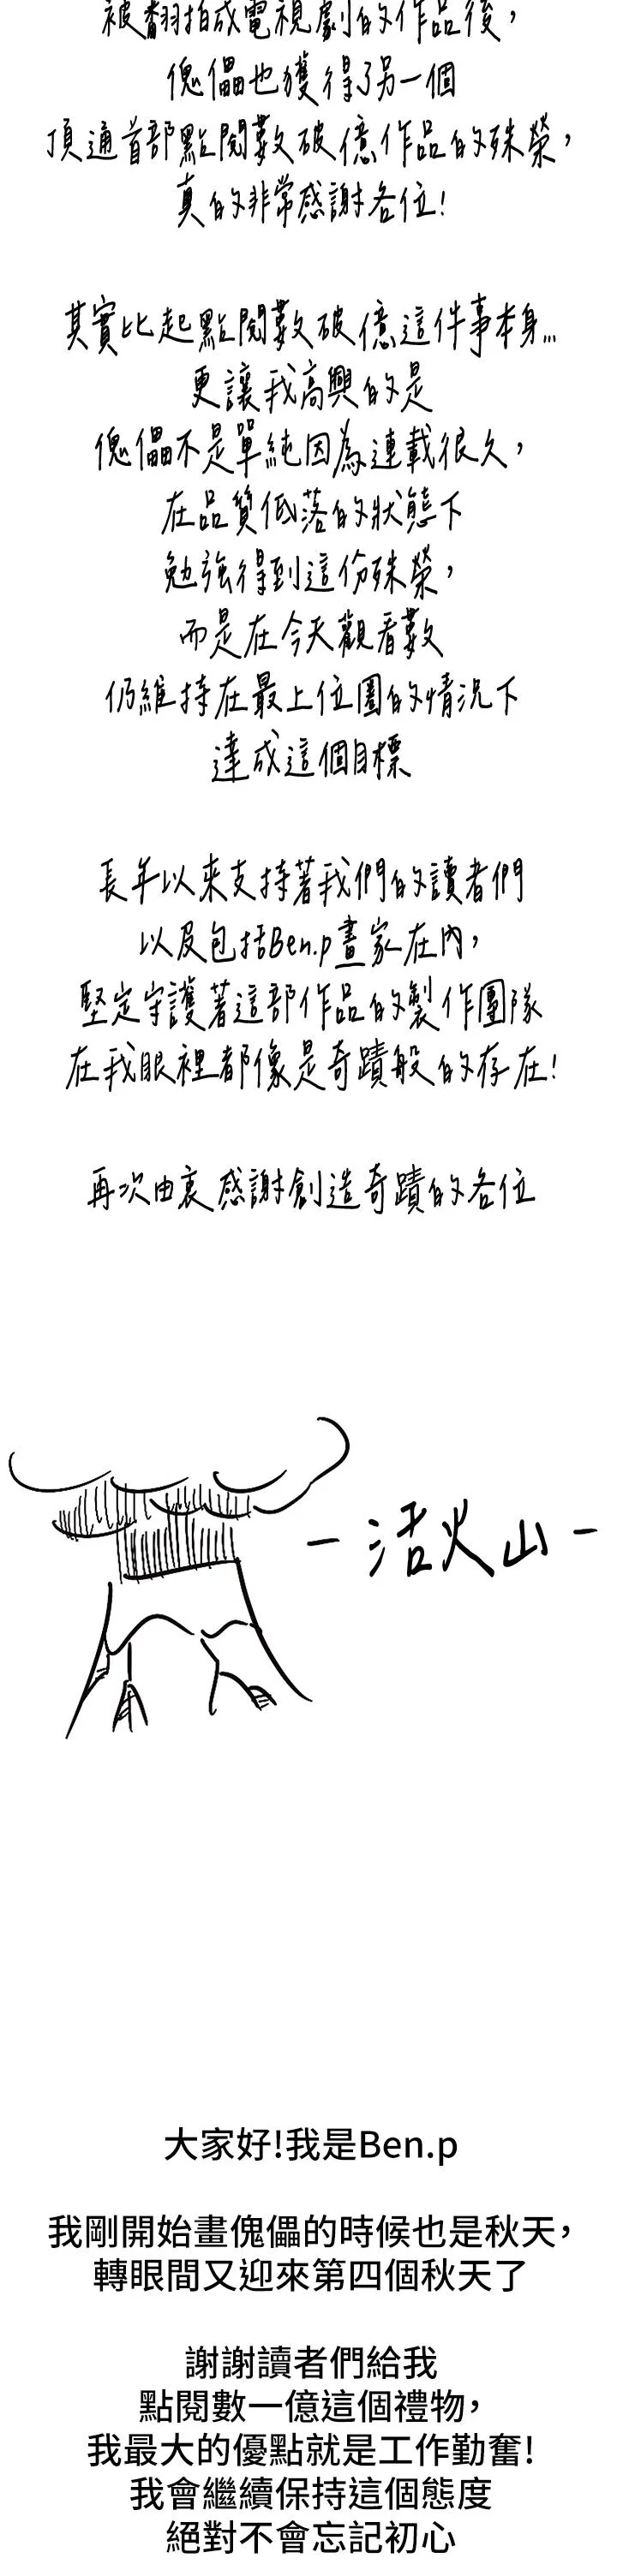 被翻拍成電視劇的作品後，
傀儡也獲得了另一個
頂通首部點閱數破億作品的殊榮，
真的非常感謝各位!
其實比起點閱數破億這件事本身...
更讓我高興的是
傀儡不是單純因為連載很久，
在品質低落的狀態下
勉強得到這份殊榮，
而是在今天觀看數
仍維持在最上位圈的情況下
達成這個目標
長年以來支持著我們的讀者們
以及包括Ben.p畫家在內，
堅定守護著這部作品的製作團隊
在我眼裡都像是奇蹟般的存在!
再次由衷感謝創造奇蹟的各位
-活火山-
大家好!我是Ben.p
我剛開始畫傀儡的時候也是秋天，
轉眼間又迎來第四個秋天了
謝謝讀者們給我
點閱數一億這個禮物，
我最大的優點就是工作勤奮!
我會繼續保持這個態度
絕對不會忘記初心